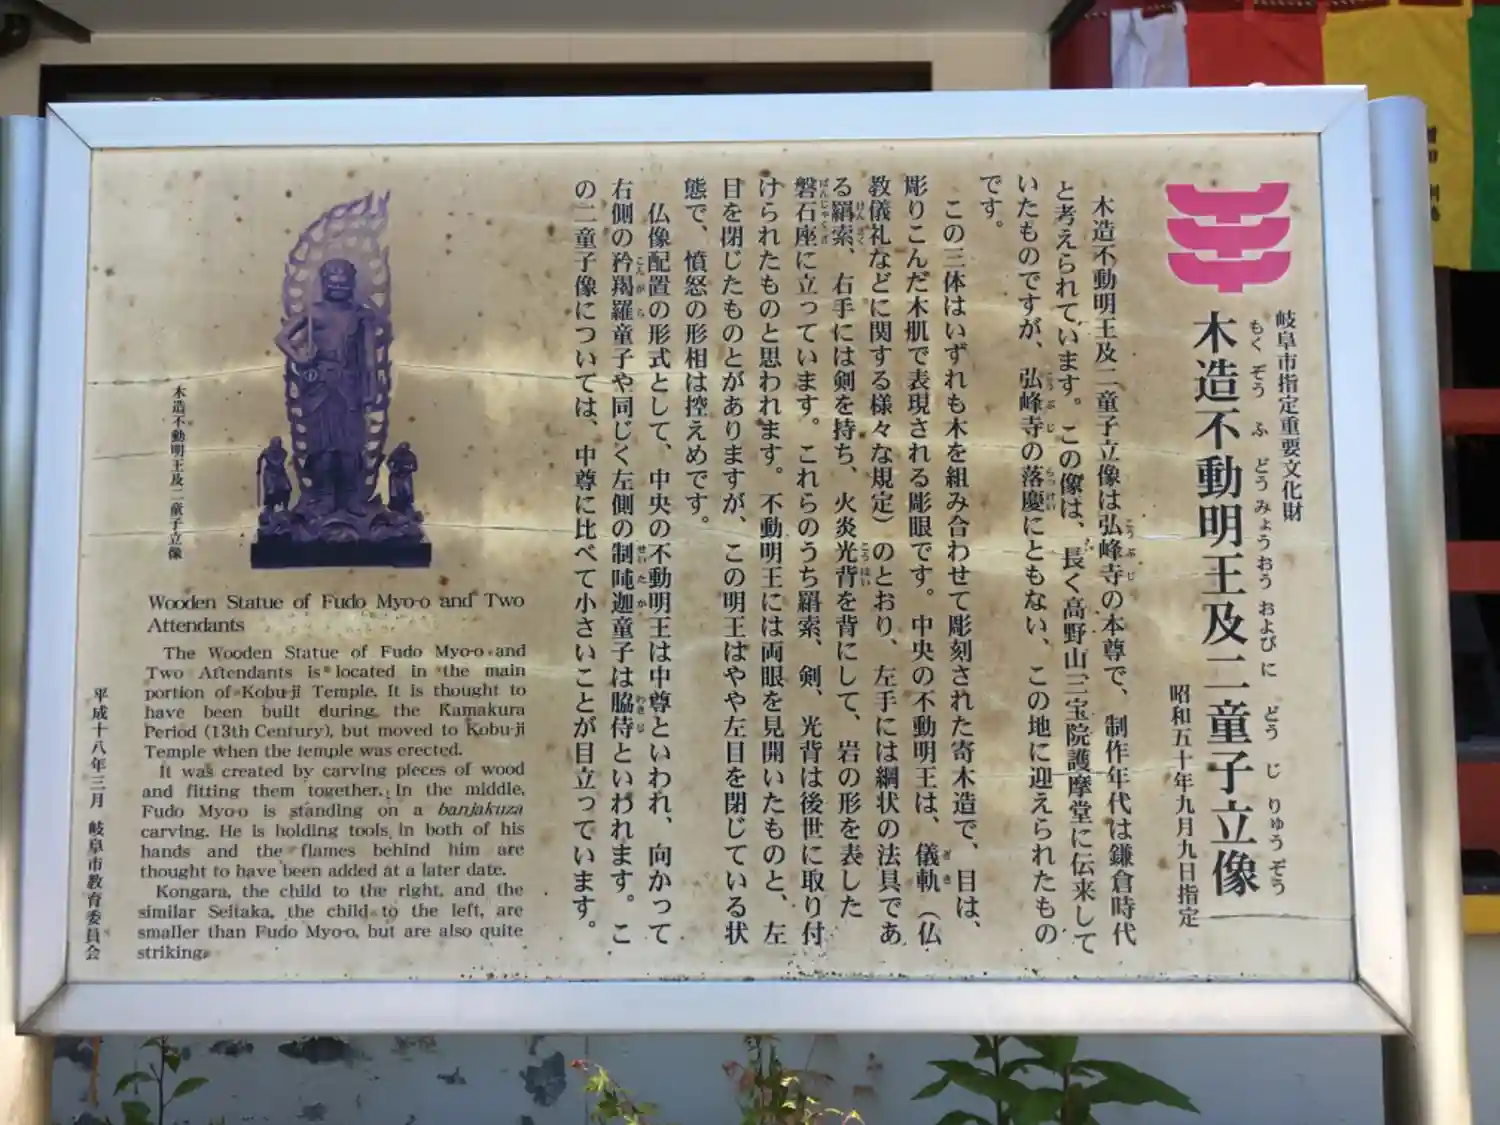 岐阜市指定重要文化財
もくぞうふどうみょうおうおよびにどうじりゅうぞう
木造不動明王及二童子立像
昭和五十年九月九日指定
木造不動明王及二童子立像は弘峰寺の本尊で、制作年代は鎌倉時代
と考えられています。この像は、長く高野山三宝院護摩堂に伝来して
いたものですが、弘峰寺の落慶にともない、この地に迎えられたもの
です。
この三体はいずれも木を組み合わせて彫刻された寄木造で、目は、
彫りこんだ木肌で表現される彫眼です。中央の不動明王は、儀軌（仏
教儀礼などに関する様々な規定）のとおり、左手には綱状の法具であ
る羂索、右手には剣を持ち、火炎光背を背にして、岩の形を表した
磐石座に立っています。これらのうち羂索、剣、光背は後世に取り付
けられたものと思われます。不動明王には両眼を見開いたものと、左
目を閉じたものとがありますが、この明王はやや左目を閉じている状
態で、憤怒の形相は控えめです。
仏像配置の形式として、中央の不動明王は中尊といわれ、向かって
右側の矜羯羅童子や同じく左側の制吒迦童子は脇侍といわれます。こ
の二童子像については、中尊に比べて小さいことが目立っています。
木造不動明王及二童子立像
Wooden Statue of Fudo Myo-o and Two
Attendants
The Wooden Statue of Fudo Myo-o and
Two Attendants is located in the main
portion of Kobu-ji Temple. It is thought to
have been built during the Kamakura
Period (13th Century), but moved to Kobu-ji
Temple when the temple was erected.
It was created by carving pieces of wood
and fitting them together. In the middle,
Fudo Myo-o is standing on a banjakuza
carving. He is holding tools in both of his
hands and the flames behind him are
thought to have been added at a later date.
Kongara, the child to the right, and the
similar Seitaka, the child to the left, are
smaller than Fudo Myo-o, but are also quite
striking.
平成十八年三月 岐阜市教育委員会